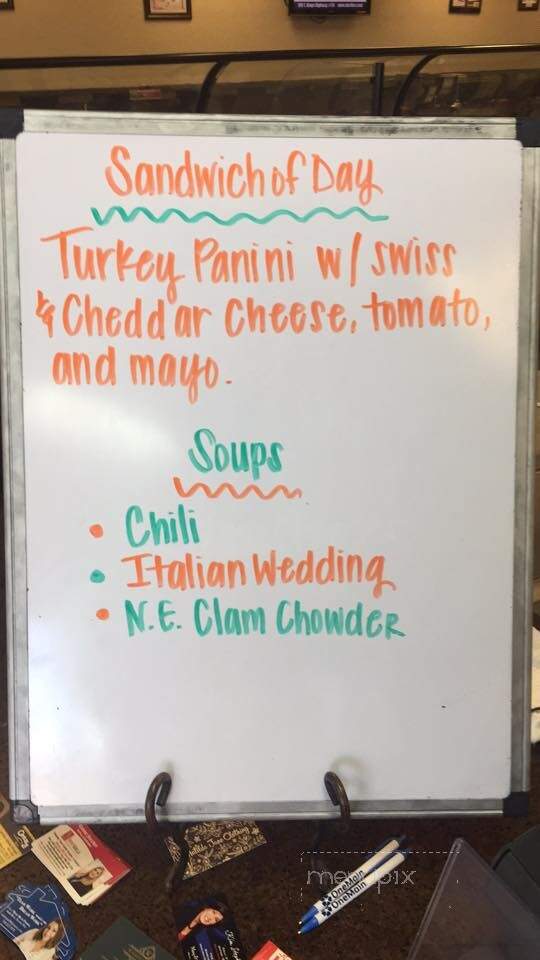 Sandwich of Day
Turkey Panini w/ swiss
& Cheddar Cheese, tomato,
and mayo.
Soups
• Chili
• Italian Wedding
• N.E. Clam Chowder
OneMain
OneMain
menupix